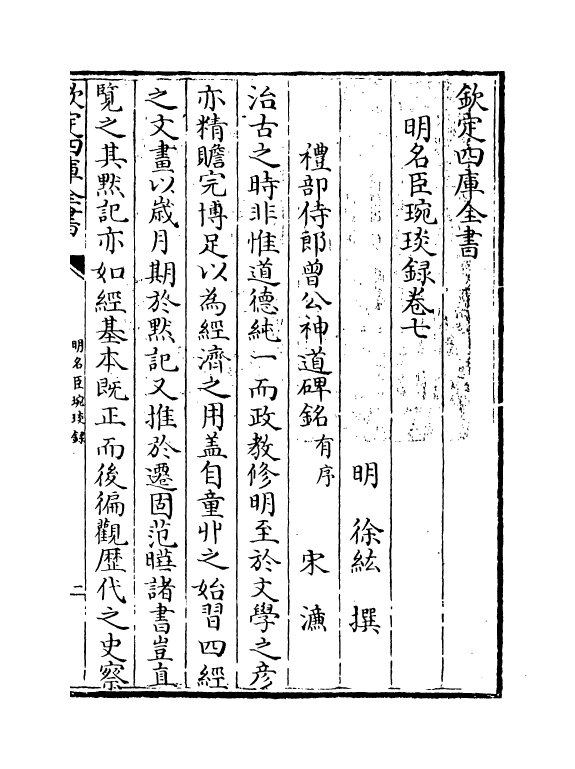 欽定四庫全書
明名臣琬琰録卷七
明　徐紘　撰
禮部侍郎曾公神道碑銘有序　宋濂
治古之時非惟道德純一而政教修明至於文學之彦
亦精贍完博足以為經濟之用盖自童丱之始習四經
之文畫以歳月期於黙記又推於遷固范曄諸書豈直
覽之其黙記亦如經基本既正而後徧觀歴代之史察
欽定四庫全書
明名臣琬琰録
二